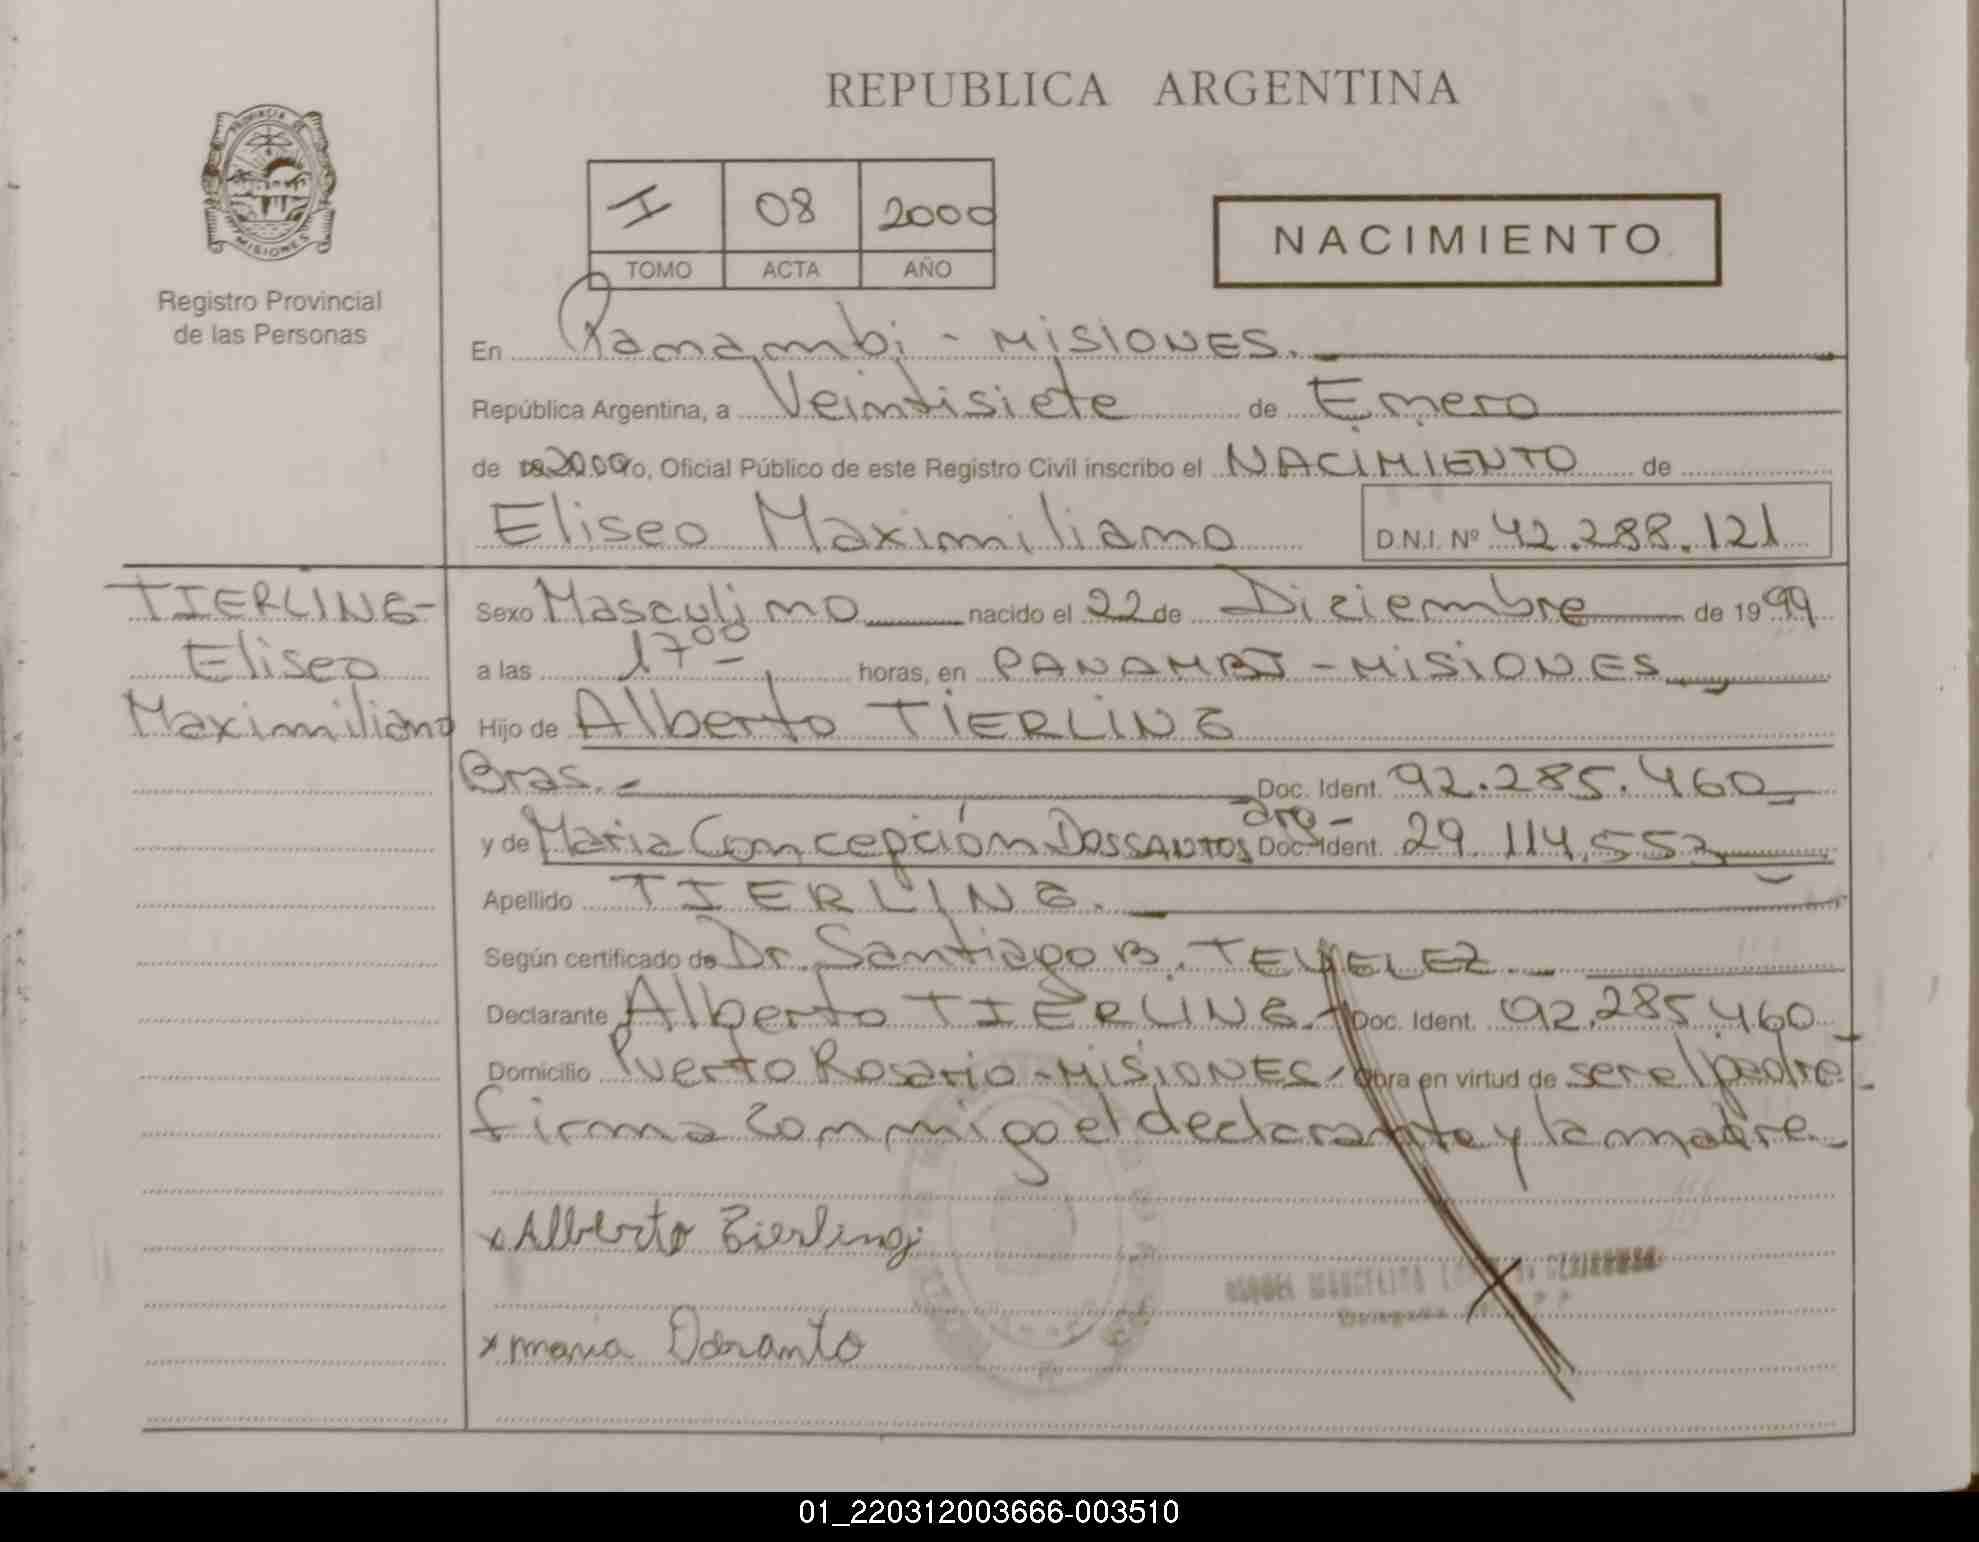 REPUBLICA ARGENTINA
PROVINCIA DE
MISIONES
Registro Provincial
de las Personas
I 08 2000
TOMO ACTA AÑO
NACIMIENTO
En Panambi - MISIONES.
República Argentina, a Veintisiete de Enero
de 2000 o, Oficial Público de este Registro Civil inscribo el NACIMIENTO de
Eliseo Maximiliano D.N.I. Nº 42.288.121
TIERLING-
Eliseo
Maximiliano
Sexo Masculino nacido el 22 de Diciembre de 1999
a las 17 00 horas, en PANAMBI - MISIONES
Hijo de Alberto TIERLING
Bras.- Doc. Ident. 92.285.460
y de Maria Concepción DOSSANTOS arg- Doc. Ident. 29.114.553
Apellido TIERLING.
Según certificado de Dr. Santiago B. TEVELEZ
Declarante Alberto TIERLING.- Doc. Ident. 92.285.460
Domicilio Puerto Rosario - MISIONES Obra en virtud de ser el padre
firma conmigo el declarante y la madre
x Alberto Tierling
x maria
01_220312003666-003510